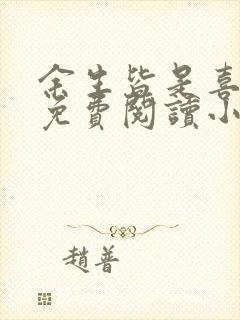 余生皆是喜
免費閱讀小
趙普